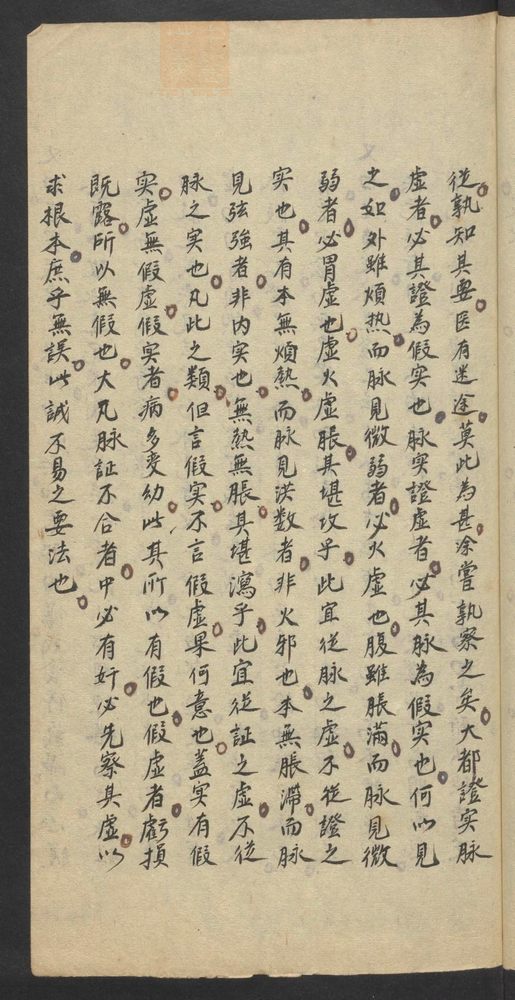 从孰知其要医有迷途莫此為甚余嘗孰察之矣大都證实脉
虚者必其證為假实也脉实證虚者必其脉為假实也何以見
之如外雖煩热而脉見微弱者必火虚也腹雖脹满而脉見微
弱者必胃虚也虚火虚脹其堪攻乎此宜從脉之虚不從證之
实也其有本無煩熱而脉見洪数者非火邪也本無脹滞而脉
見弦強者非内实也無熱無脹其堪瀉乎此宜從証之虚不從
脉之实也凡此之類但言假实不言假虚果何意也盖实有假
实虚無假虚假实者病多变幻此其所以有假也假虚者虧損
既露所以無假也大凡脉証不合者中必有奸必先察其虚以
求根本庶乎無誤此誠不易之要法也